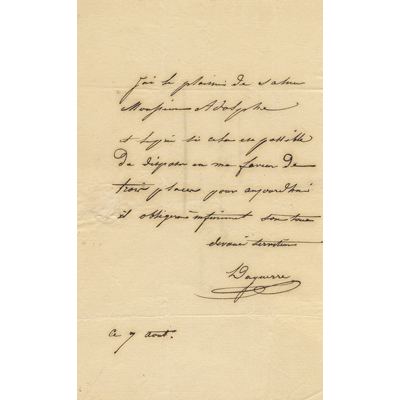 J'ai le plaisir de saluer
Monsieur Adolphe
et si cela est possible
De disposer en ma faveur de
trois places pour aujourd'hui
il obligera infiniment son tout
devoué serviteur
Daguerre
ce 7 aout.